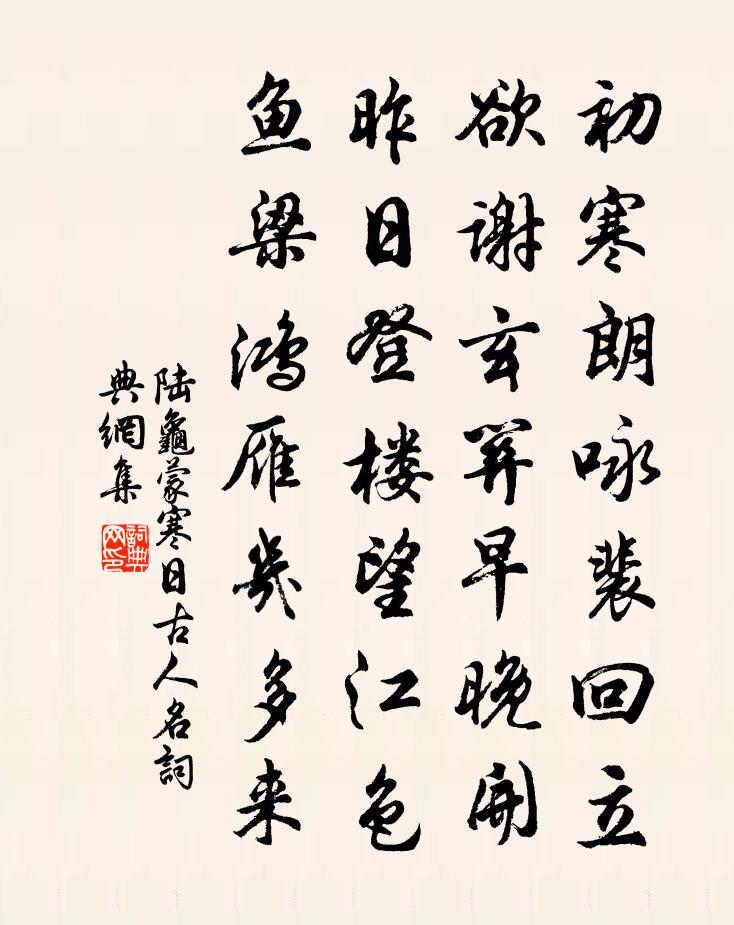 初寒朗咏裴回立
欲谢玄関早晚開
昨日登楼望江色
鱼梁鸿雁幾多来
陆龜蒙寒日古人名詞
典網集
詞典网印